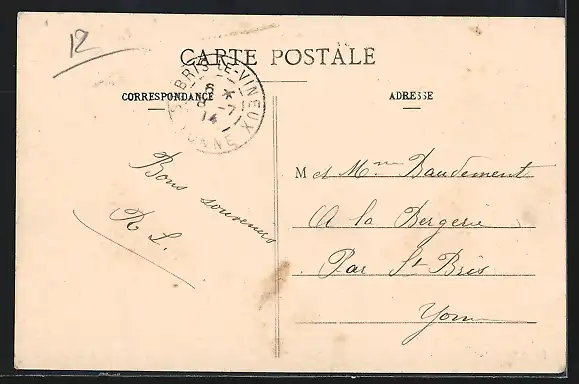 12
CARTE POSTALE
CORRESPONDANCE
ADRESSE
ST-BRIS-LE-VINEUX
8 -7
14
YONNE
Bons souvenirs
R L.
M et Mme Daudement
A la Bergerie
Par St-Bris
Yonne